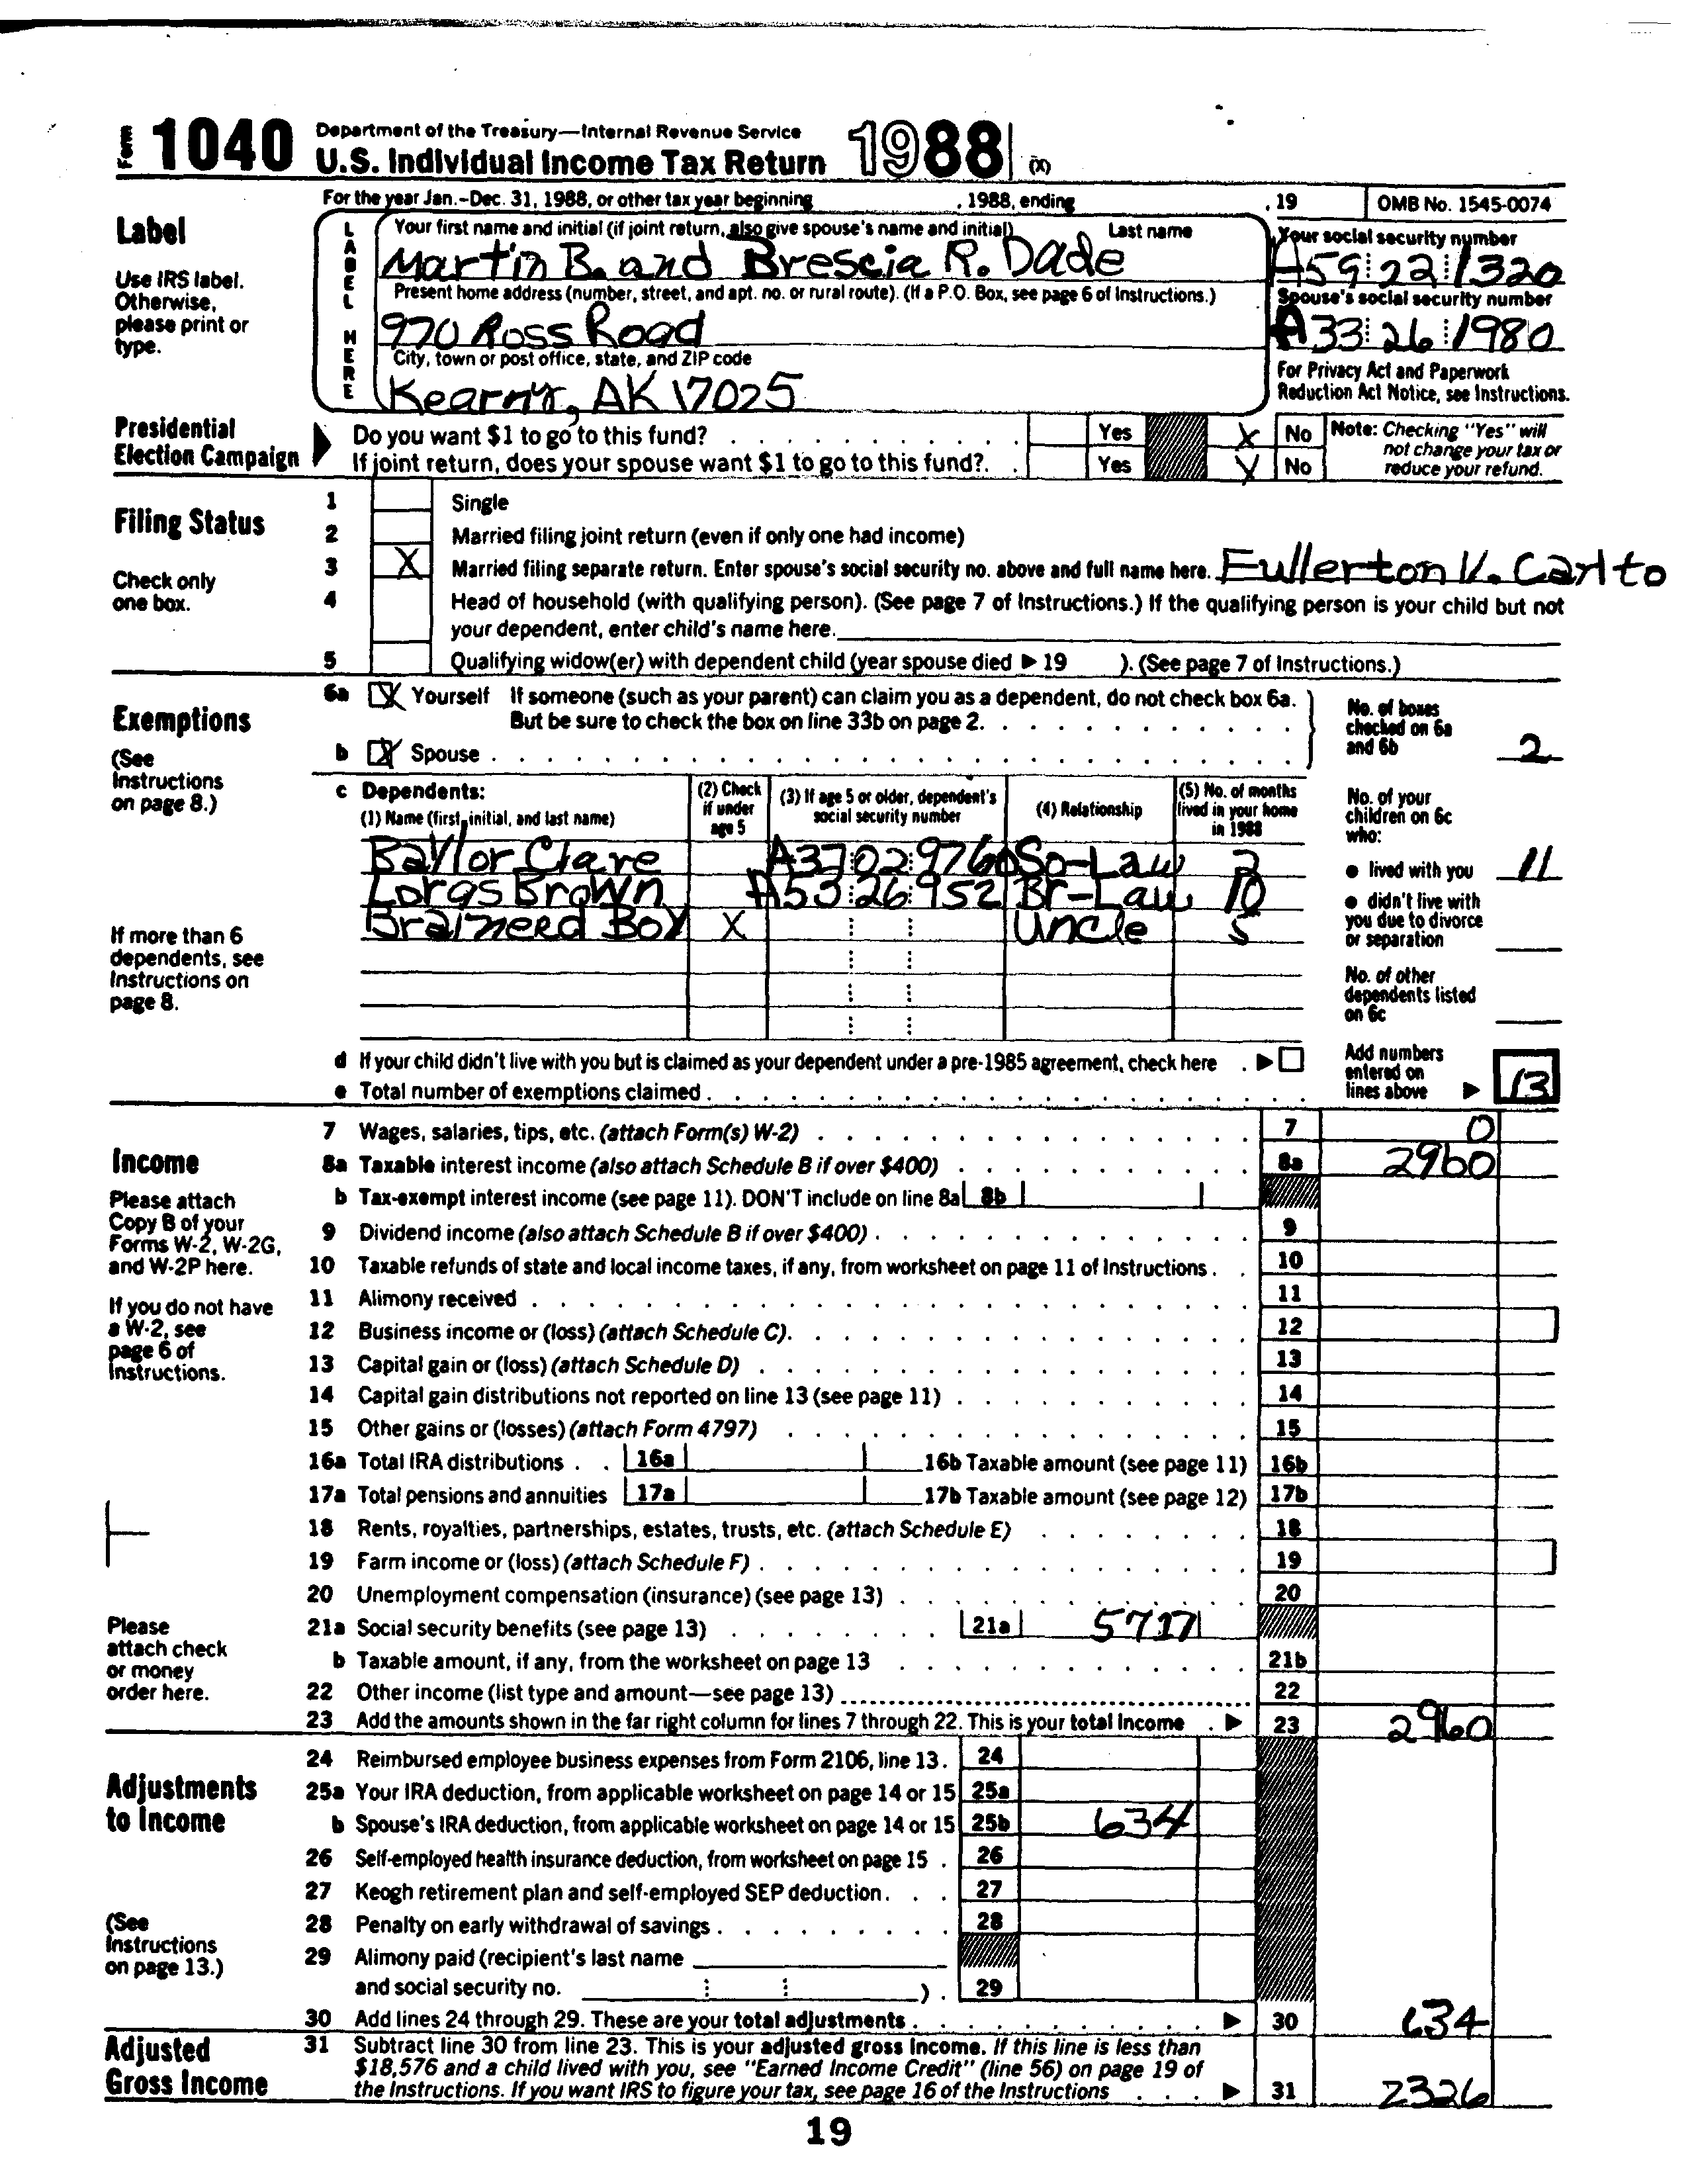 Form 1040 Department of the Treasury—Internal Revenue Service
U.S. Individual Income Tax Return 1988 (X)
For the year Jan.–Dec. 31, 1988, or other tax year beginning , 1988, ending , 19 OMB No. 1545-0074
Label
Use IRS label. Otherwise, please print or type.
LABEL HERE
Your first name and initial (if joint return, also give spouse's name and initial) Last name
Martin B. and Brescia R. Dade
Your social security number
A59 22 1320
Present home address (number, street, and apt. no. or rural route). (If a P.O. Box, see page 6 of Instructions.)
970 Ross Road
Spouse's social security number
A33 26 1980
City, town or post office, state, and ZIP code
Kearny, AK 17025
For Privacy Act and Paperwork Reduction Act Notice, see Instructions.
Presidential Election Campaign
Do you want $1 to go to this fund? Yes X No
If joint return, does your spouse want $1 to go to this fund? Yes X No
Note: Checking "Yes" will not change your tax or reduce your refund.
Filing Status
Check only one box.
1 Single
2 Married filing joint return (even if only one had income)
3 X Married filing separate return. Enter spouse's social security no. above and full name here. Fullerton V. Carlto
4 Head of household (with qualifying person). (See page 7 of Instructions.) If the qualifying person is your child but not
your dependent, enter child's name here.
5 Qualifying widow(er) with dependent child (year spouse died ▶ 19 ). (See page 7 of Instructions.)
Exemptions
(See Instructions on page 8.)
6a X Yourself If someone (such as your parent) can claim you as a dependent, do not check box 6a.
But be sure to check the box on line 33b on page 2.
b X Spouse
No. of boxes checked on 6a and 6b 2
c Dependents:
(1) Name (first, initial, and last name) (2) Check if under age 5 (3) If age 5 or older, dependent's social security number (4) Relationship (5) No. of months lived in your home in 1988
Baylor Clare A37 02 9760 So-Law 2
Loras Brown A53 26 952 Br-Law 10
Braineed Boy X Uncle 5
If more than 6 dependents, see Instructions on page 8.
No. of your children on 6c who:
● lived with you 11
● didn't live with you due to divorce or separation
No. of other dependents listed on 6c
d If your child didn't live with you but is claimed as your dependent under a pre-1985 agreement, check here ▶
e Total number of exemptions claimed
Add numbers entered on lines above ▶ 13
Income
Please attach Copy B of your Forms W-2, W-2G, and W-2P here.
If you do not have a W-2, see page 6 of Instructions.
Please attach check or money order here.
7 Wages, salaries, tips, etc. (attach Form(s) W-2) 7 0
8a Taxable interest income (also attach Schedule B if over $400) 8a 2960
b Tax-exempt interest income (see page 11). DON'T include on line 8a 8b
9 Dividend income (also attach Schedule B if over $400) 9
10 Taxable refunds of state and local income taxes, if any, from worksheet on page 11 of Instructions 10
11 Alimony received 11
12 Business income or (loss) (attach Schedule C) 12
13 Capital gain or (loss) (attach Schedule D) 13
14 Capital gain distributions not reported on line 13 (see page 11) 14
15 Other gains or (losses) (attach Form 4797) 15
16a Total IRA distributions 16a 16b Taxable amount (see page 11) 16b
17a Total pensions and annuities 17a 17b Taxable amount (see page 12) 17b
18 Rents, royalties, partnerships, estates, trusts, etc. (attach Schedule E) 18
19 Farm income or (loss) (attach Schedule F) 19
20 Unemployment compensation (insurance) (see page 13) 20
21a Social security benefits (see page 13) 21a 5717
b Taxable amount, if any, from the worksheet on page 13 21b
22 Other income (list type and amount—see page 13) 22
23 Add the amounts shown in the far right column for lines 7 through 22. This is your total income ▶ 23 2960
Adjustments to Income
(See Instructions on page 13.)
24 Reimbursed employee business expenses from Form 2106, line 13. 24
25a Your IRA deduction, from applicable worksheet on page 14 or 15 25a
b Spouse's IRA deduction, from applicable worksheet on page 14 or 15 25b 634
26 Self-employed health insurance deduction, from worksheet on page 15 26
27 Keogh retirement plan and self-employed SEP deduction 27
28 Penalty on early withdrawal of savings 28
29 Alimony paid (recipient's last name
and social security no. ) 29
30 Add lines 24 through 29. These are your total adjustments ▶ 30 634
Adjusted Gross Income
31 Subtract line 30 from line 23. This is your adjusted gross income. If this line is less than
$18,576 and a child lived with you, see "Earned Income Credit" (line 56) on page 19 of
the Instructions. If you want IRS to figure your tax, see page 16 of the Instructions ▶ 31 2326
19